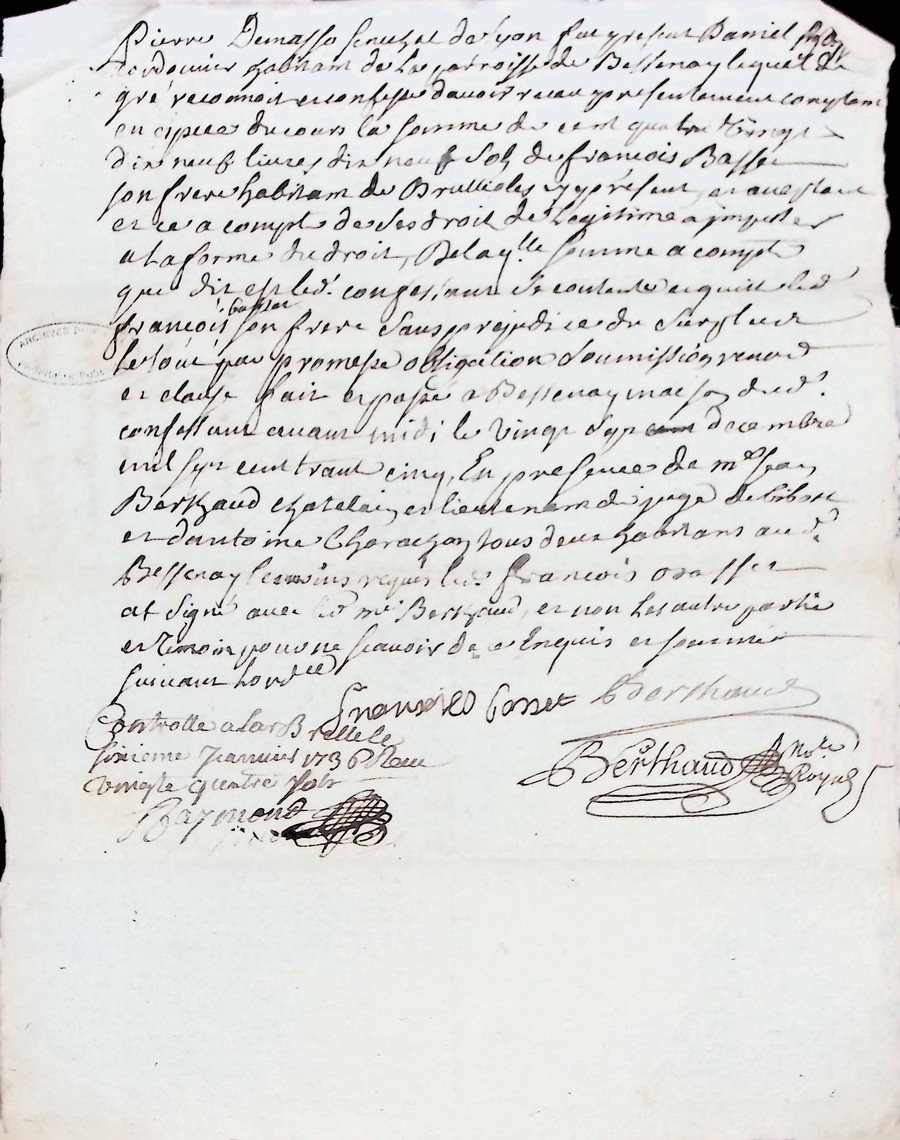 Pierre Demasso senechal de Lyon fut present Daniel
Cordonier habitant de la parroisse de Bessenay lequel de
gré reconnoit et confesse d'avoir receu presentement comptant
en espece du cours la somme de cent quatre vingt
dix neuf livres dix neuf solz de françois Basset
son frere habitant de Brullioles cy present et aceptant
et ce a compte de ses droit de legitime a imputer
a la forme du droit, De laqlle somme a compte
que dit est led. confessant se contente et quitte led
Basset
françois son frere sans prejudice du surplus et
le tout par promesse obligation soumission renond
et clause fait et passé a Bessenay maison dud.
confessant avant midi le vingt sept decembre
mil sept cent trant cinq, En presence de me Jean
Berthaud chatelain et lieutenant de juge de bibost
et d'antoine Charachon tous deux habitans aud.
Bessenay temoins requis led. françois Basset
at signé avec led me Berthaud, et non les autre partie
et temoin pour ne scavoir de ce Enquis et sommé
suivant lordce
Francois Basset Berthaud
Controlle a larBrelle le
sixieme Janvier 1736 Receu
vingte quatre sols
Berthaud Nore
Royal
Raymond